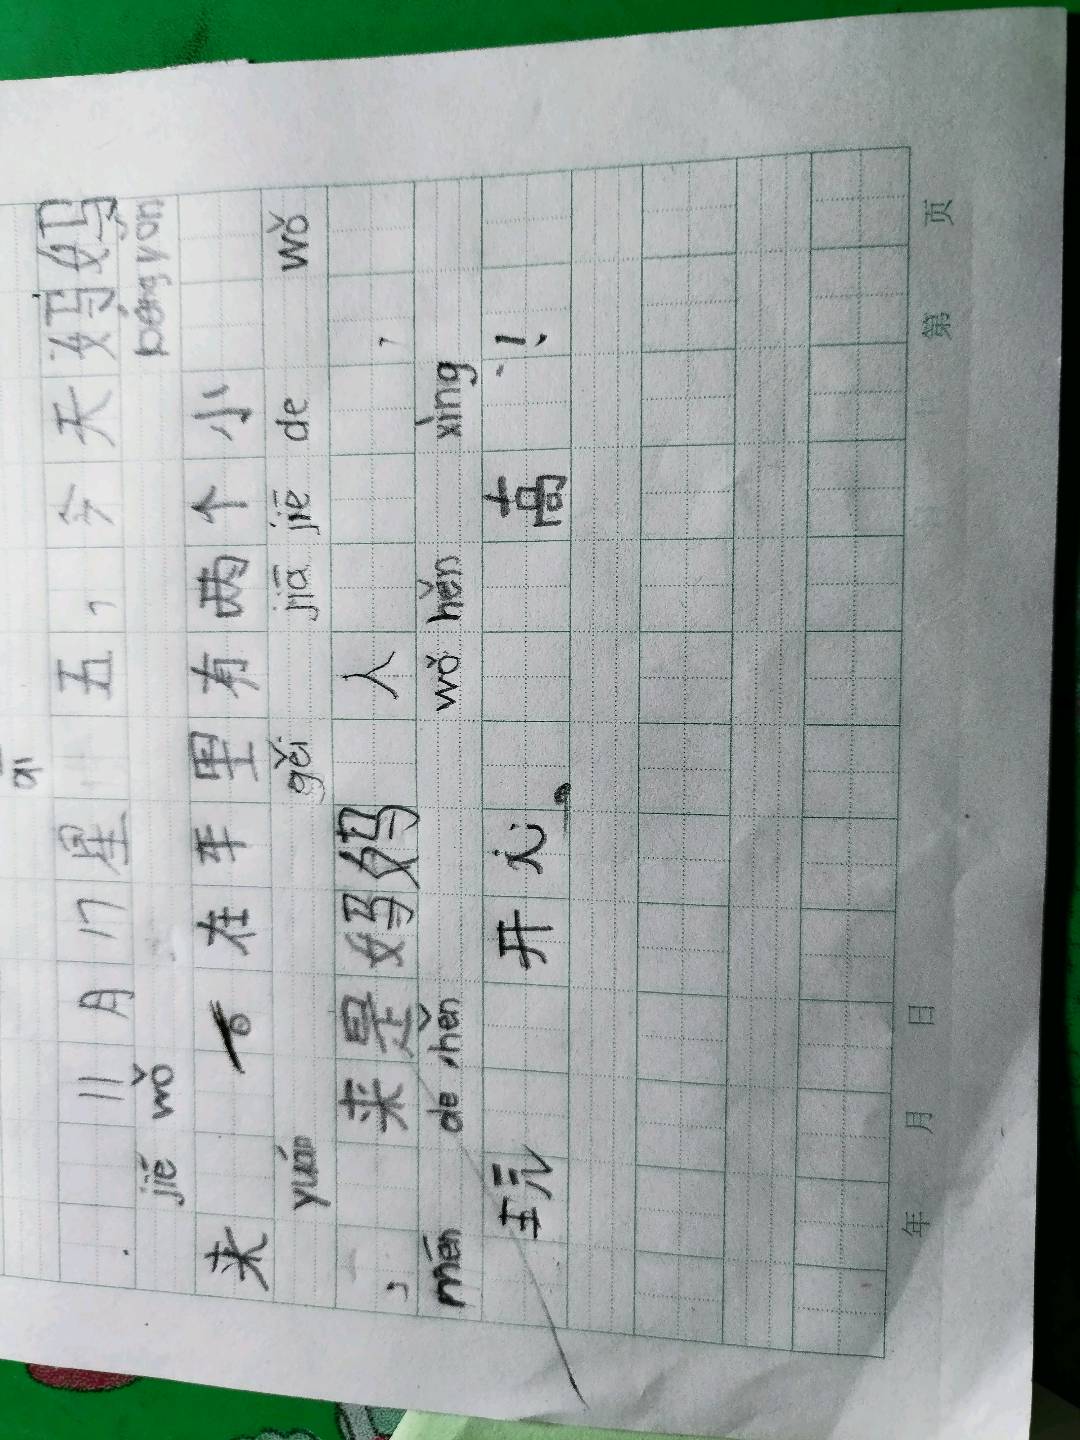 āi
11月17星 五，今天妈妈
jiē wǒ péng yǒu
来 在车里有两个小
yuán gěi jiā jiē de wǒ
， 来是妈妈 人 ，
mén de hěn wǒ hěn xìng
玩 开心。 高 ！
年 月 日 第 页